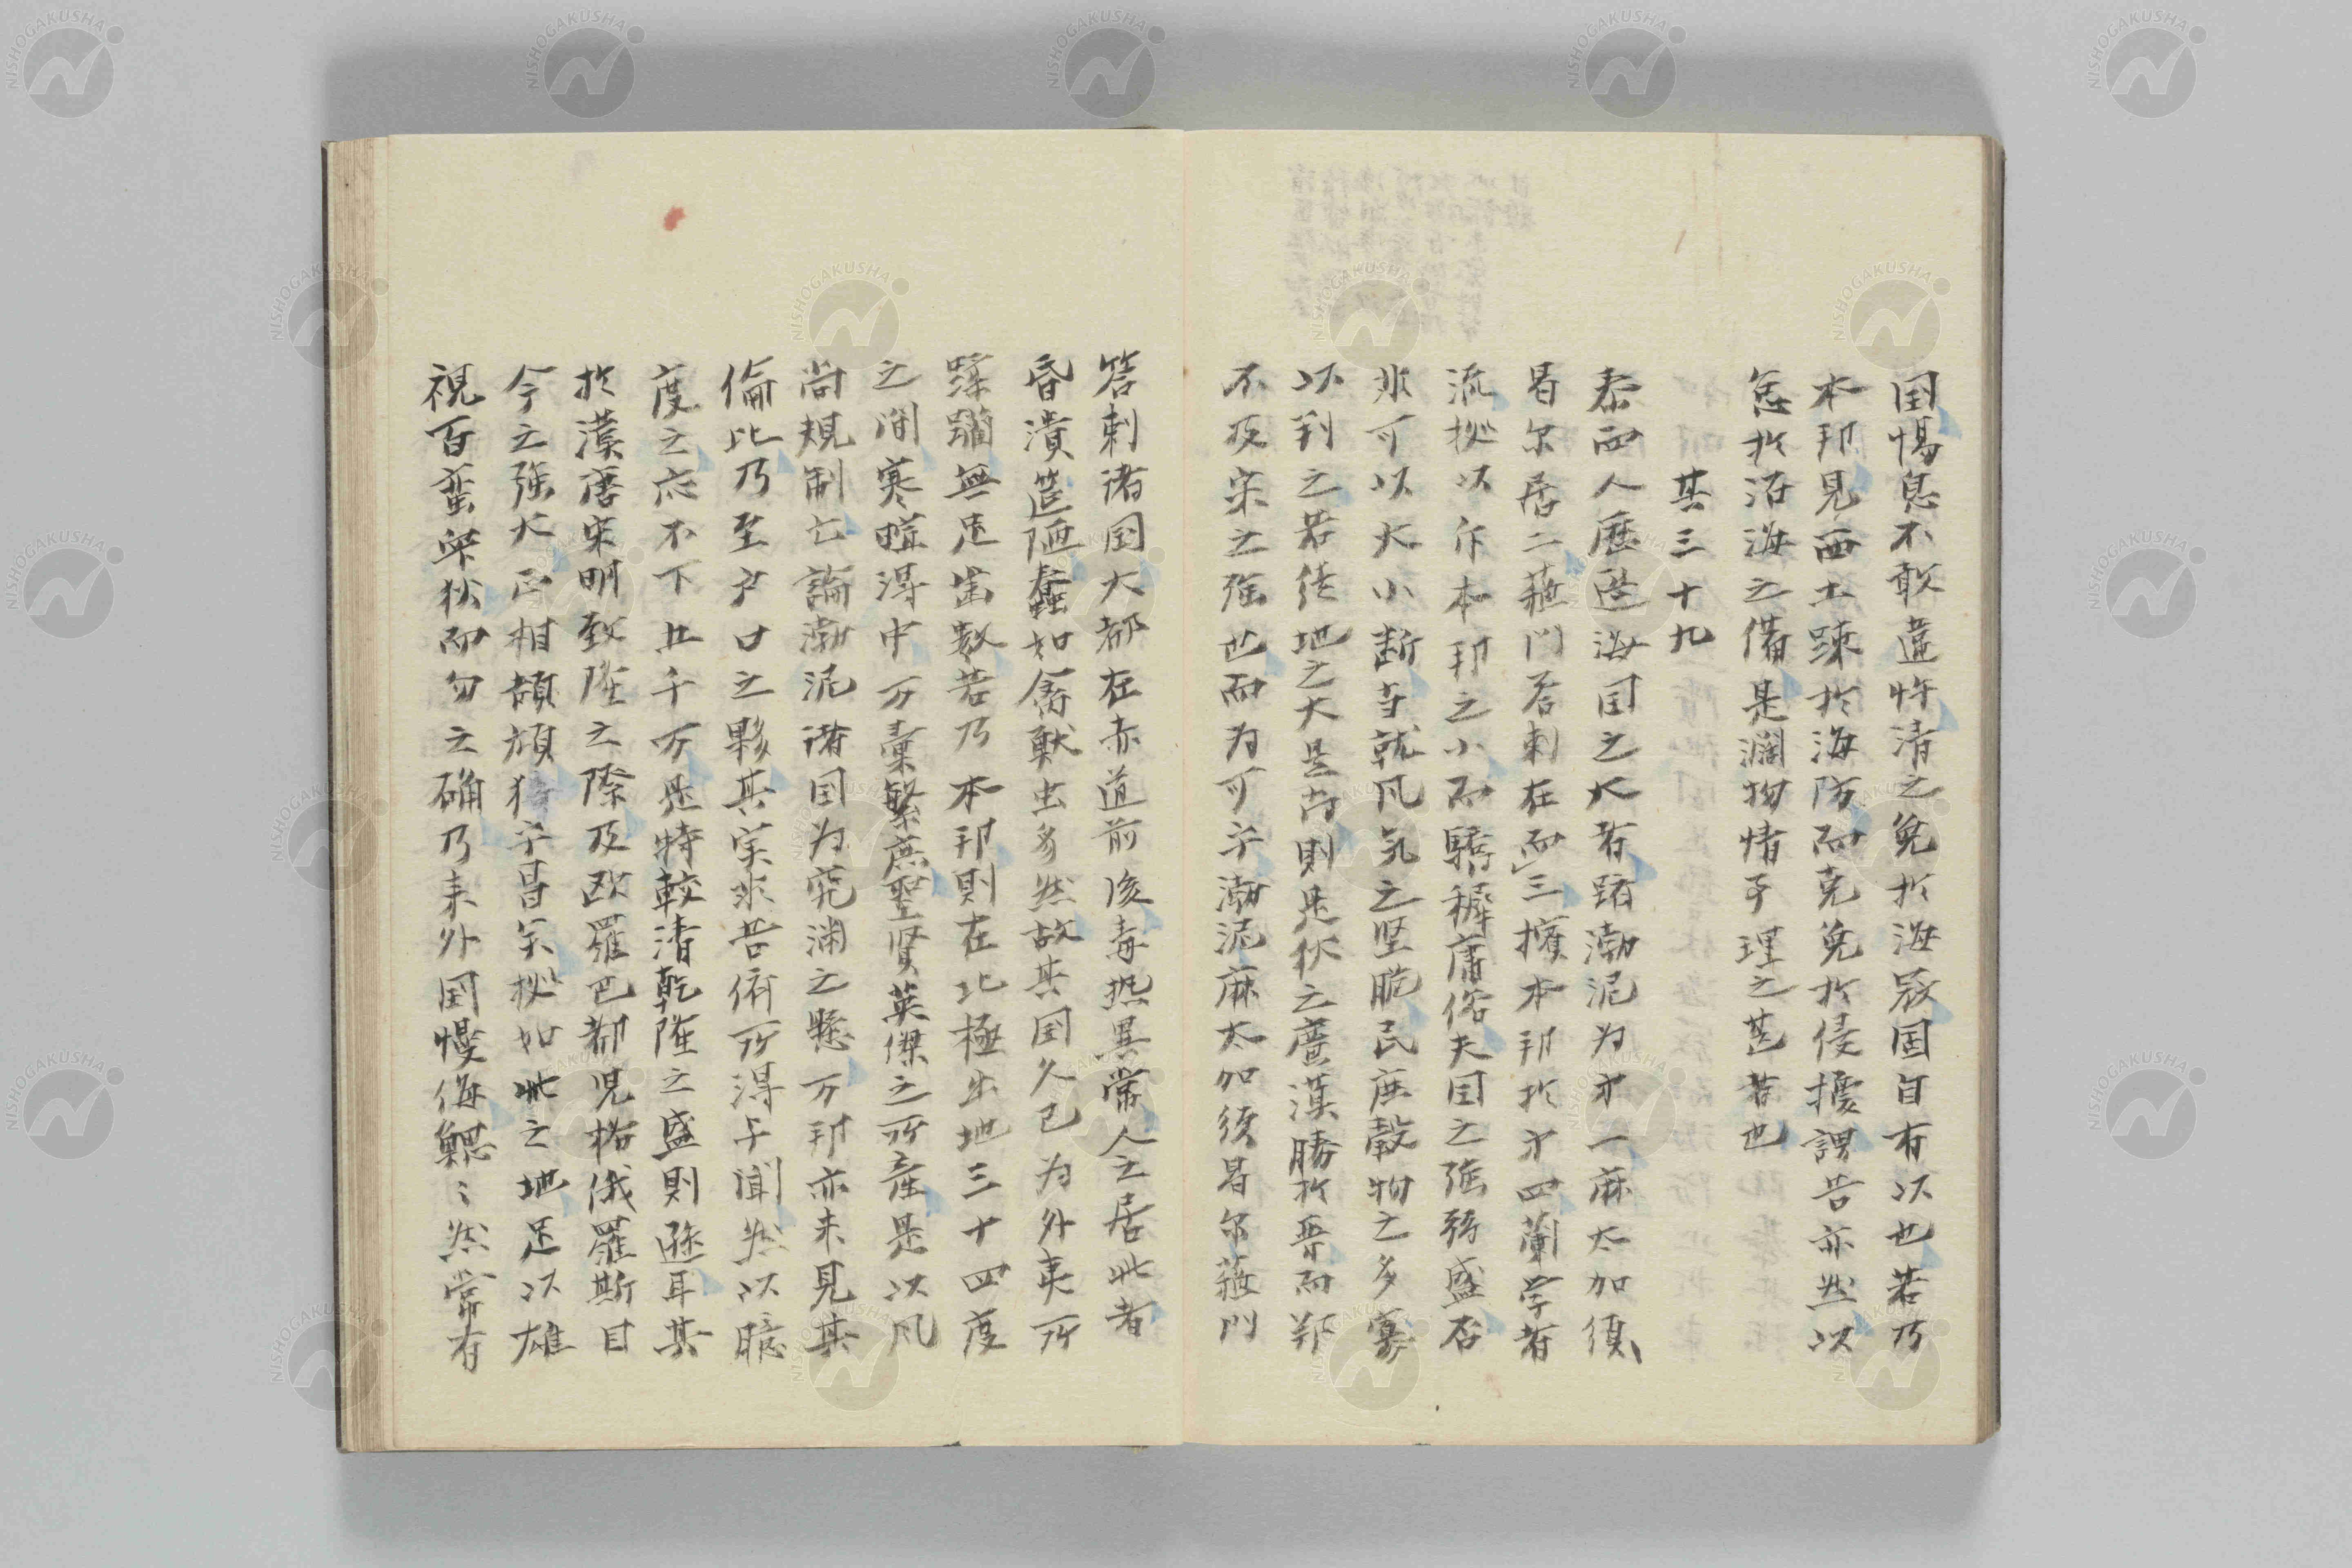 国惕息不敢違忤清之免於海寇固自有以也若乃
本邦見西土疎於海防而克免於侵擾謂吾亦然以
怠於沿海之備是濶物情于理之甚者也
其三十九
泰西人歴造海国之大者踏渤泥为才一麻太加須
曷尓居二蘓門荅剌在而三擯本邦於才四蘭学者
流拠以斥本邦之小而驕穉庸俗夫国之強弱盛否
非可以大小断寺就风気之坚脆民庶穀物之多寡
以判之若徒地之大是尚則是狄之蘆漢勝於齊而邦
不及宋之强也而为可乎渤泥麻太加須曷尓蘓門
答剌诸国大都在赤道前後毒热異常人之居此者
昏潰茞陋蠢如禽獣虫豸然故其国久已为外夷所
蹂躙無足崇数若乃本邦則在北極出地三十四度
之間寒暄得中万彙繁庶聖贤英傑之所産是以风
尚規制亡論渤泥诸国为霓渊之懸万邦亦未見其
倫比乃至戸口之夥其实非吾儕所得于闻然以臆
度之応不下廿千万是特較清乾隆之盛則遜耳其
於漢唐宋明致隆之際及欧羅巴都児格俄羅斯目
今之强大正相頡頏猗乎昌矣拠如此之地足以雄
視百蛮舉狄而勿之确乃来外国慢侮鰓〻然常有